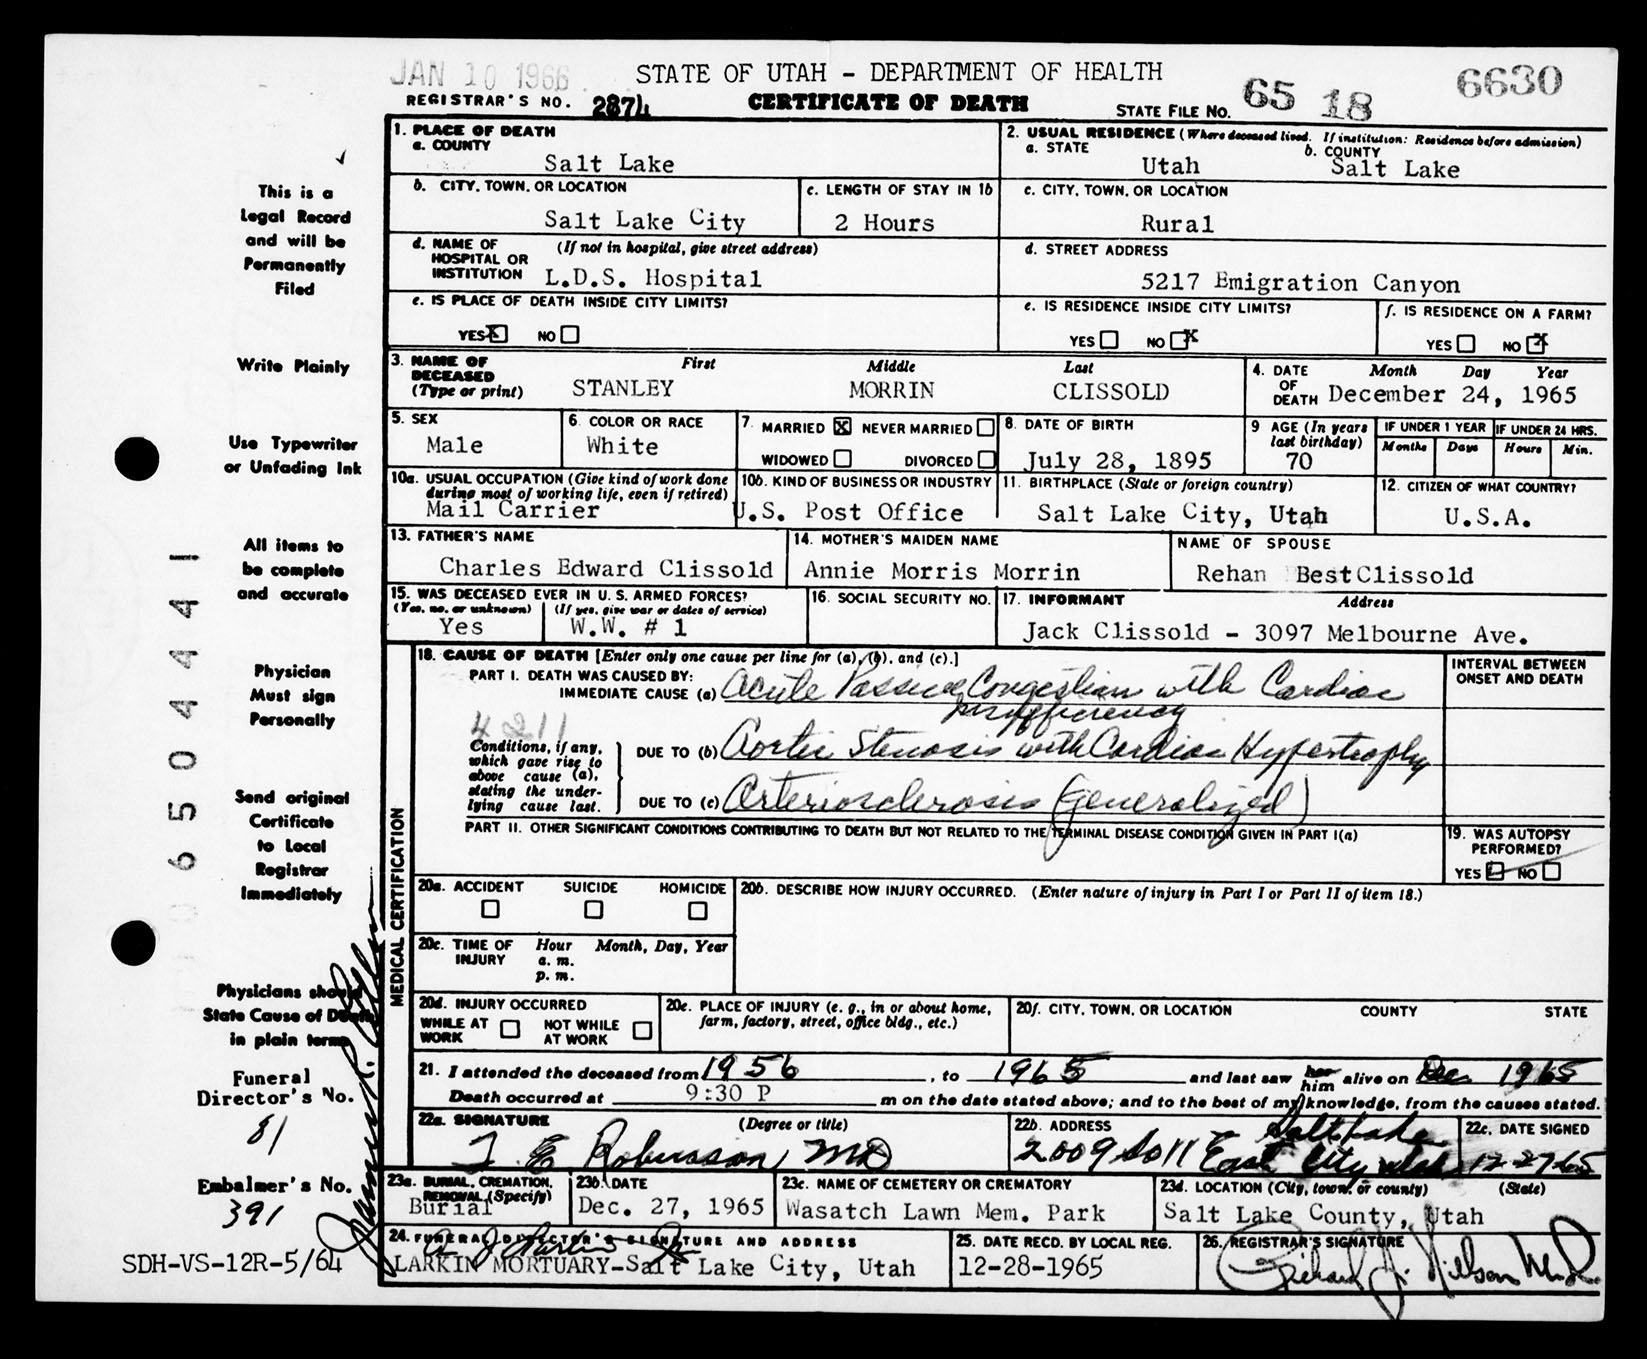 JAN 10 1966
STATE OF UTAH - DEPARTMENT OF HEALTH
6630
REGISTRAR'S NO. 2874
CERTIFICATE OF DEATH
STATE FILE NO. 65 18
This is a
Legal Record
and will be
Permanently
Filed
Write Plainly
Use Typewriter
or Unfading Ink
All items to
be complete
and accurate
Physician
Must sign
Personally
Send original
Certificate
to Local
Registrar
Immediately
Physicians should
State Cause of Death
in plain terms
Funeral
Director's No.
81
Embalmer's No.
391
SDH-VS-12R-5/64
0 6 5 0 4 4 4 1
1. PLACE OF DEATH
a. COUNTY
Salt Lake
2. USUAL RESIDENCE (Where deceased lived. If institution: Residence before admission)
a. STATE
Utah
b. COUNTY
Salt Lake
b. CITY, TOWN, OR LOCATION
Salt Lake City
c. LENGTH OF STAY IN 1b
2 Hours
c. CITY, TOWN, OR LOCATION
Rural
d. NAME OF HOSPITAL OR INSTITUTION
(If not in hospital, give street address)
L.D.S. Hospital
d. STREET ADDRESS
5217 Emigration Canyon
e. IS PLACE OF DEATH INSIDE CITY LIMITS?
YES X NO
e. IS RESIDENCE INSIDE CITY LIMITS?
YES NO X
f. IS RESIDENCE ON A FARM?
YES NO X
3. NAME OF DECEASED (Type or print)
First Middle Last
STANLEY MORRIN CLISSOLD
4. DATE OF DEATH
Month Day Year
December 24, 1965
5. SEX
Male
6. COLOR OR RACE
White
7. MARRIED X NEVER MARRIED
WIDOWED DIVORCED
8. DATE OF BIRTH
July 28, 1895
9 AGE (In years last birthday)
70
IF UNDER 1 YEAR
Months Days
IF UNDER 24 HRS.
Hours Min.
10a. USUAL OCCUPATION (Give kind of work done during most of working life, even if retired)
Mail Carrier
10b. KIND OF BUSINESS OR INDUSTRY
U.S. Post Office
11. BIRTHPLACE (State or foreign country)
Salt Lake City, Utah
12. CITIZEN OF WHAT COUNTRY?
U.S.A.
13. FATHER'S NAME
Charles Edward Clissold
14. MOTHER'S MAIDEN NAME
Annie Morris Morrin
NAME OF SPOUSE
Rehan Best Clissold
15. WAS DECEASED EVER IN U. S. ARMED FORCES?
(Yes, no, or unknown) (If yes, give war or dates of service)
Yes W.W. # 1
16. SOCIAL SECURITY NO.
17. INFORMANT Address
Jack Clissold - 3097 Melbourne Ave.
MEDICAL CERTIFICATION
18. CAUSE OF DEATH [Enter only one cause per line for (a), (b), and (c).]
INTERVAL BETWEEN ONSET AND DEATH
PART I. DEATH WAS CAUSED BY:
IMMEDIATE CAUSE (a) Acute Passive Congestion with Cardiac
insufficiency
4211
Conditions, if any, which gave rise to above cause (a), stating the underlying cause last.
DUE TO (b) Aortic Stenosis with Cardiac Hypertrophy
DUE TO (c) Arteriosclerosis (Generalized)
PART II. OTHER SIGNIFICANT CONDITIONS CONTRIBUTING TO DEATH BUT NOT RELATED TO THE TERMINAL DISEASE CONDITION GIVEN IN PART I(a)
19. WAS AUTOPSY PERFORMED?
YES NO
20a. ACCIDENT SUICIDE HOMICIDE
20b. DESCRIBE HOW INJURY OCCURRED. (Enter nature of injury in Part I or Part II of item 18.)
20c. TIME OF INJURY
Hour Month, Day, Year
a. m.
p. m.
20d. INJURY OCCURRED
WHILE AT WORK NOT WHILE AT WORK
20e. PLACE OF INJURY (e. g., in or about home, farm, factory, street, office bldg., etc.)
20f. CITY, TOWN, OR LOCATION COUNTY STATE
21. I attended the deceased from 1956, to 1965 and last saw her him alive on Dec 1965
Death occurred at 9:30 P m on the date stated above; and to the best of my knowledge, from the causes stated.
22a. SIGNATURE (Degree or title)
T E Robinson, MD
22b. ADDRESS
2009 So 11 East Salt Lake City Utah
22c. DATE SIGNED
12-27-65
23a. BURIAL, CREMATION, REMOVAL (Specify)
Burial
23b. DATE
Dec. 27, 1965
23c. NAME OF CEMETERY OR CREMATORY
Wasatch Lawn Mem. Park
23d. LOCATION (City, town, or county) (State)
Salt Lake County, Utah
24. FUNERAL DIRECTOR'S SIGNATURE AND ADDRESS
LARKIN MORTUARY-Salt Lake City, Utah
25. DATE RECD. BY LOCAL REG.
12-28-1965
26. REGISTRAR'S SIGNATURE